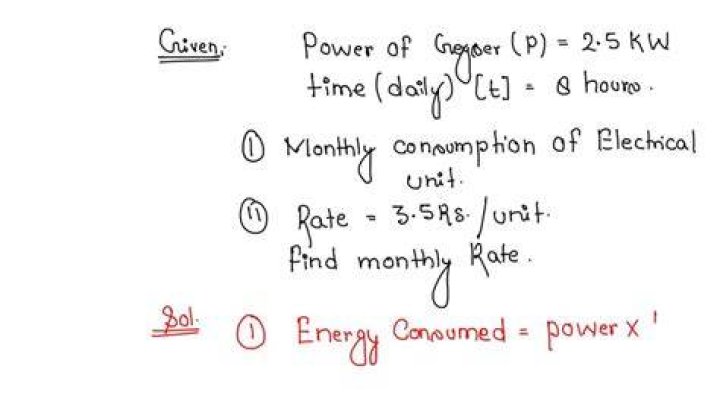 Given:
Power of Geyser (P) = 2.5 KW
time (daily) [t] = 8 hours.
(i) Monthly consumption of Electrical
unit.
(ii) Rate = 3.5 Rs. / unit.
find monthly Rate.
Sol. (1) Energy Consumed = power x